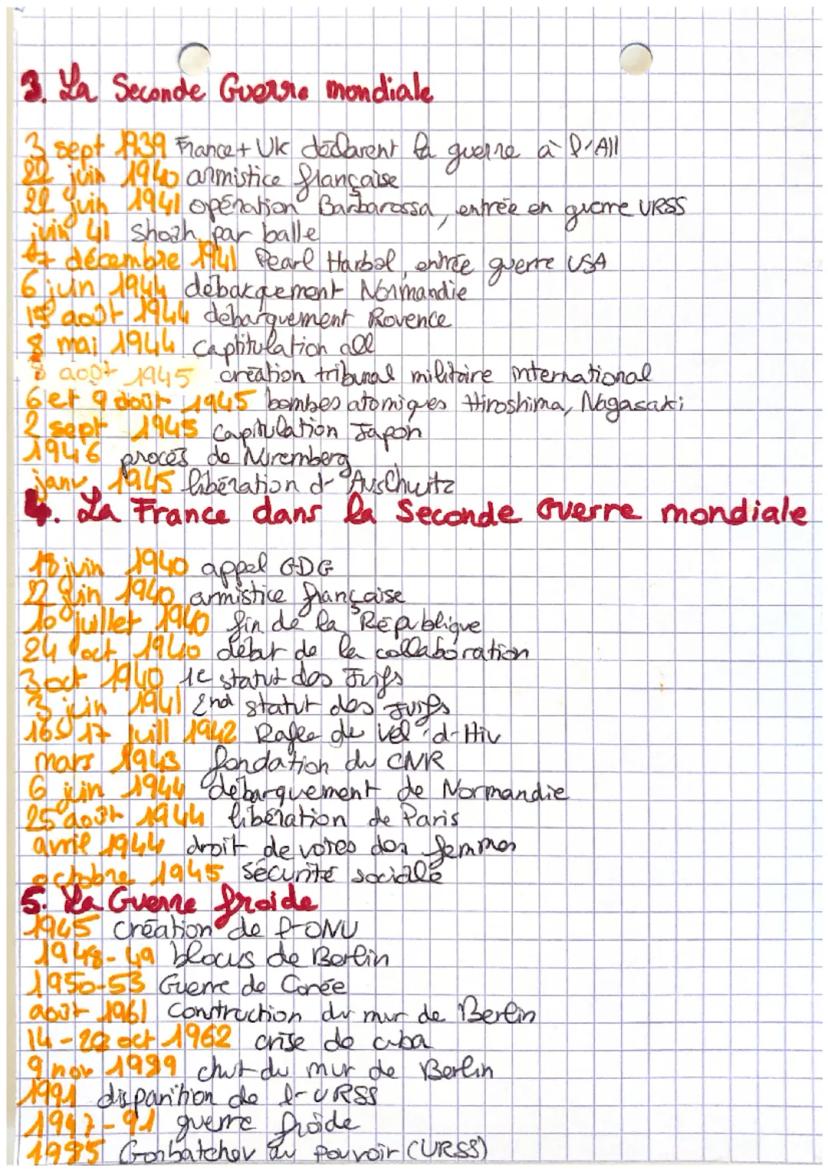 3. La Seconde Guerre mondiale
3 sept 1939 France + UK déclarent la guerre à l'All
22 juin 1940 armistice française
22 juin 1941 opération Barbarossa, entrée en guerre URSS
juin 41 shoah par balle
7 décembre 1941 Pearl Harbol, entrée guerre USA
6 juin 1944 débarquement Normandie
15 août 1944 débarquement Rovence
8 mai 1944 captitulation all
8 août 1945 création tribunal militaire international
6 et 9 août 1945 bombes atomiques Hiroshima, Nagasaki
2 sept 1945 capitulation Japon
1946 procès de Nuremberg
janv 1945 libération d'Auschwitz
4. La France dans la Seconde Guerre mondiale
18 juin 1940 appel GDG
22 juin 1940 armistice française
10 juillet 1940 fin de la République
24 oct 1940 début de la collaboration
3 oct 1940 1e statut des Juifs
3 juin 1941 2nd statut des juifs
16 17 juill 1942 Rafle de Vel-d-Hiv
mars 1943 fondation du CNR
6 juin 1944 débarquement de Normandie
25 août 1944 libération de Paris
avril 1944 droit de votes des femmes
octobre 1945 sécurité sociale
5. La Guerre froide
1945 création de l'ONU
1948-49 blocus de Berlin
1950-53 Guerre de Corée
août 1961 construction du mur de Berlin
14-28 oct 1962 crise de cuba
9 nov 1989 chut du mur de Berlin
1991 disparition de l'URSS
1947-91 guerre froide
1985 Gorbatchev au pouvoir (URSS)